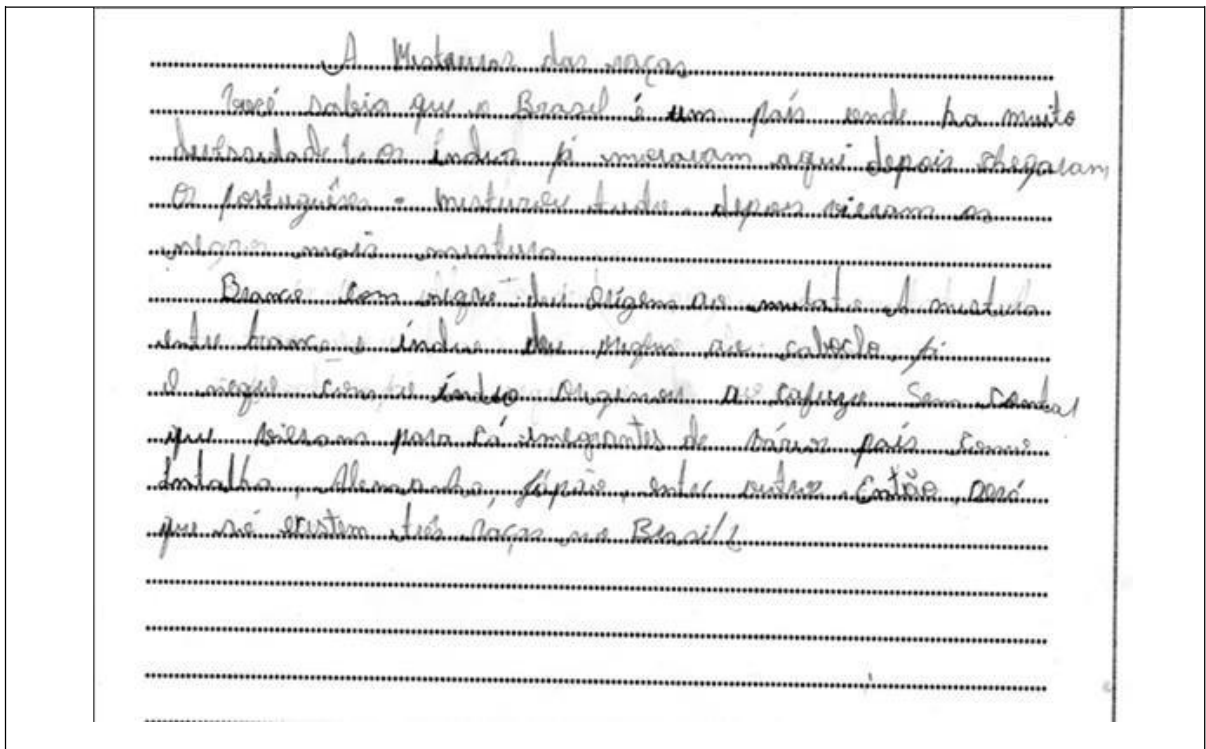 A Misturas das raças
Você sabia que o Brasil é um país onde ha muito
diversidade? os índios já moravam aqui depois chegaram
os portuguêses - misturou tudo. depois vieram os
negro mais mistura
Branco com negro deu origem ao mulato A mistura
entre branco e índio deu origem ao caboclo, já
o negro com o índio originou ao cafuzo Sem contar
que vieram para cá imegrantes de vários país como
Alemanha, Japão, entre outros. Então, será
que só existem três raças no Brasil?